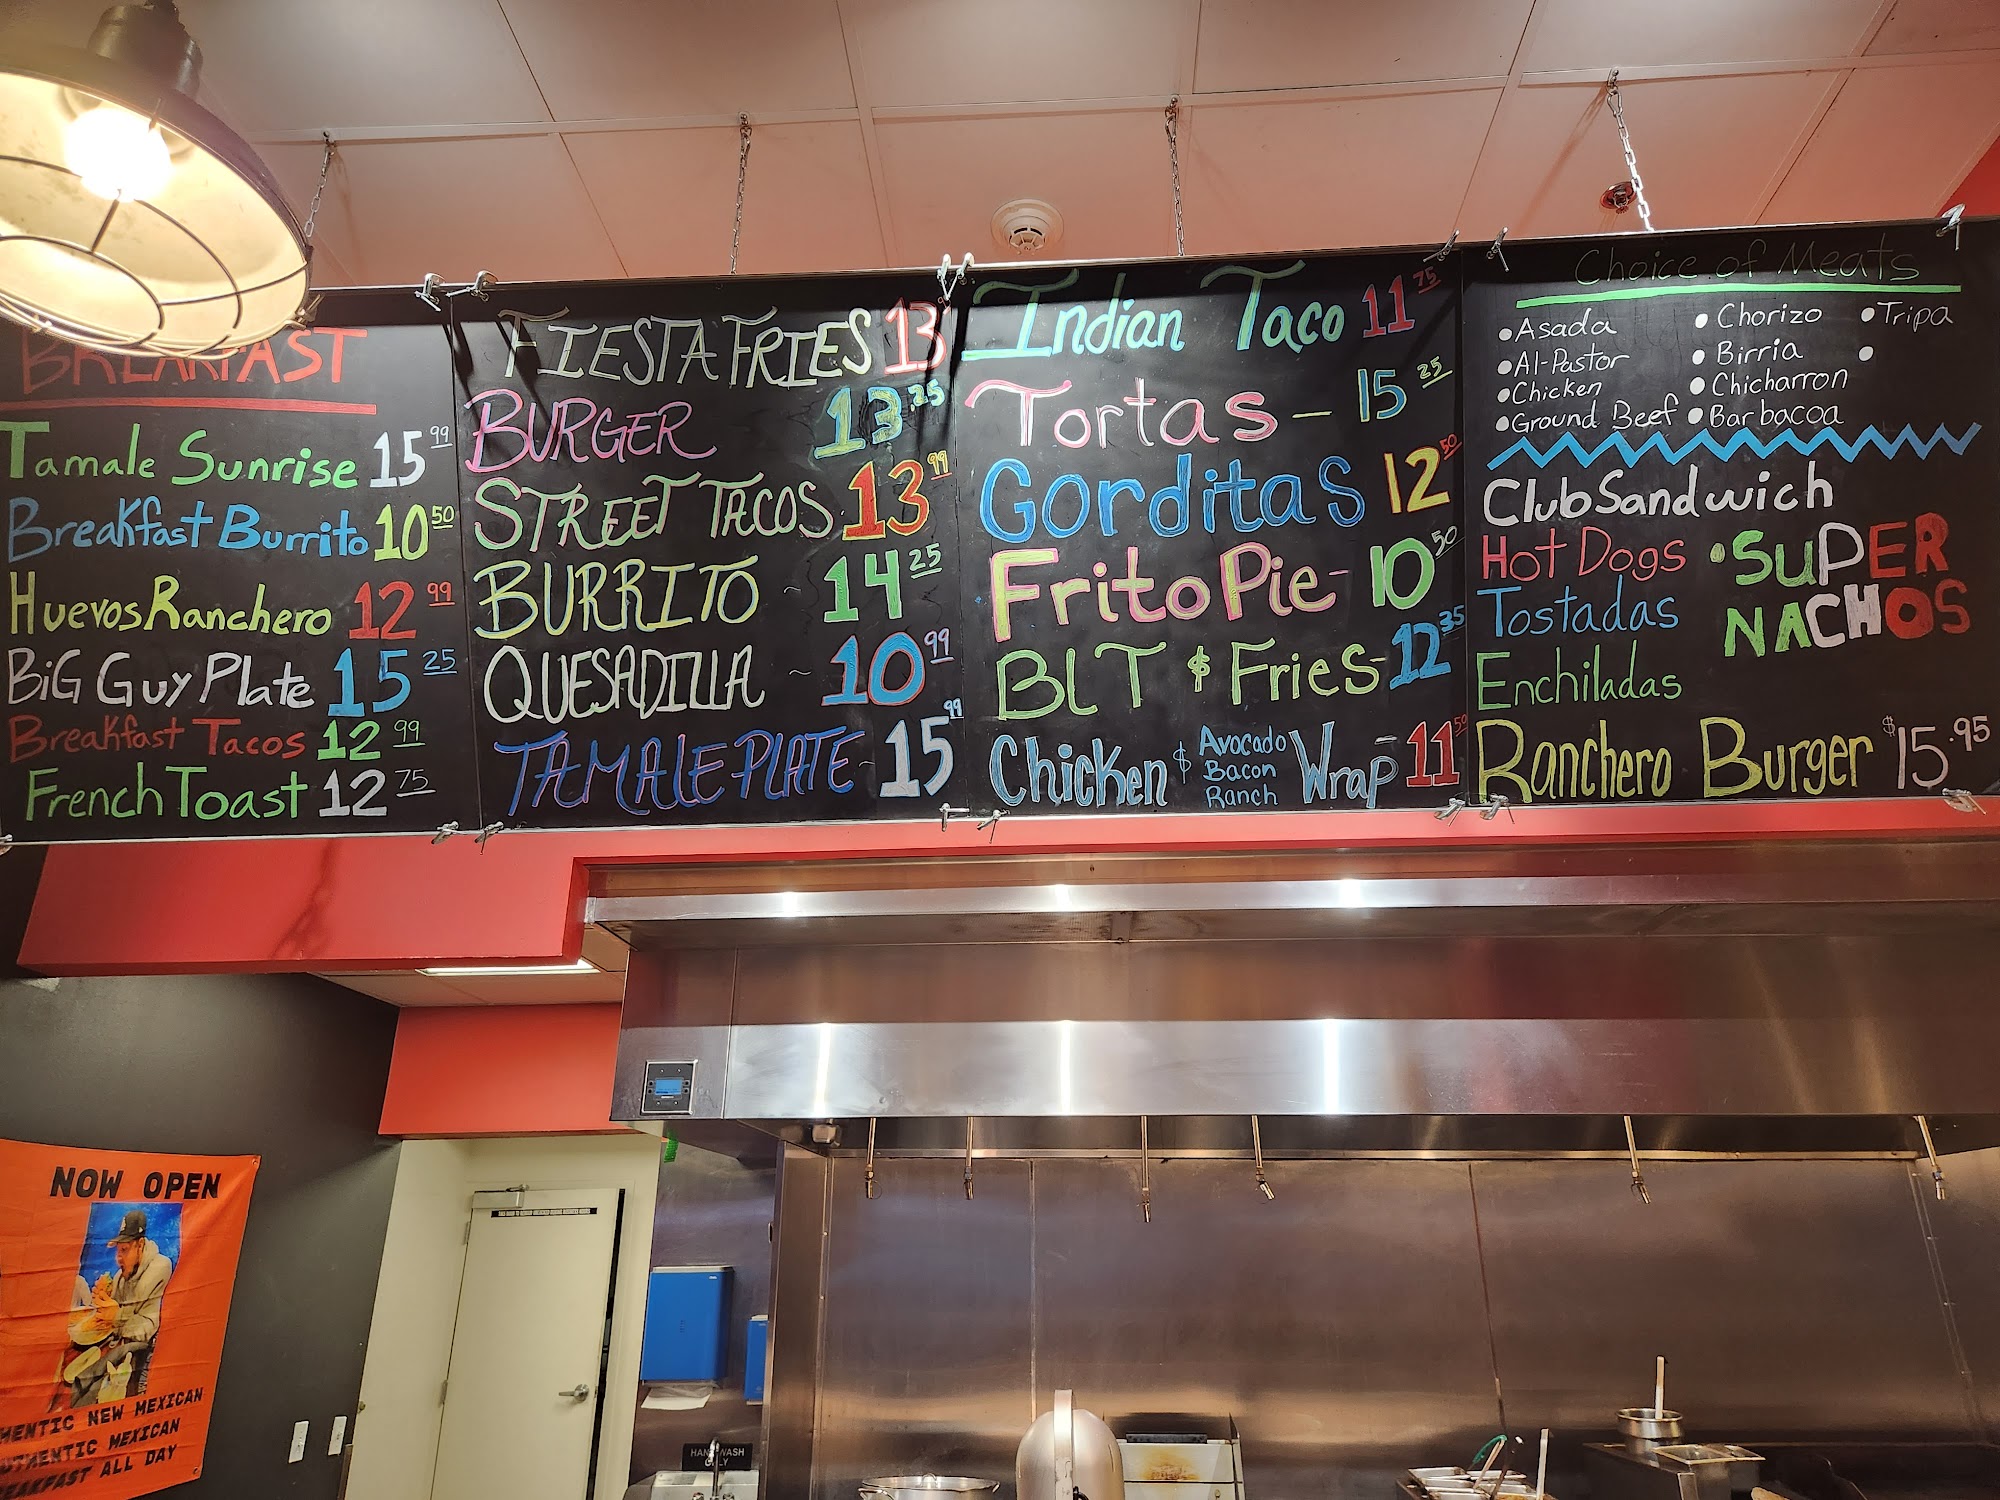 BREAKFAST
Tamale Sunrise 15 99
Breakfast Burrito 10 50
Huevos Ranchero 12 99
BiG Guy Plate 15 25
Breakfast Tacos 12 99
French Toast 12 75
FIESTA FRIES 13
BURGER 13.25
STREET TACOS 13 99
BURRITO ~ 14 25
QUESADILLA ~ 10 99
TAMALE PLATE ~ 15 99
Indian Taco 11 75
Tortas — 15 25
Gorditas 12 50
Frito Pie - 10 50
BLT $ Fries - 12 35
Chicken $ Avocado Bacon Ranch Wrap - 11 50
Choice of Meats
• Asada
• Al-Pastor
• Chicken
• Ground Beef
• Chorizo
• Birria
• Chicharron
• Barbacoa
• Tripa
•
Club Sandwich
Hot Dogs
Tostadas
Enchiladas
• SUPER
NACHOS
Ranchero Burger $15.95
NOW OPEN
HENTIC NEW MEXICAN
THENTIC MEXICAN
EAKFAST ALL DAY
HAND WASH
ONLY